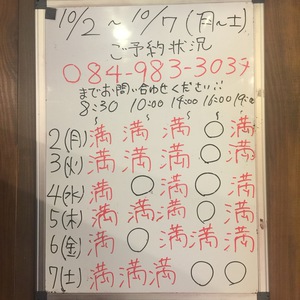 10/2 ～ 10/7 (月～土)
ご予約状況
084-983-3037
までお問い合わせください!!
8:30 10:00 14:00 16:00 19:00
2(月) 満 満 満 ○ 満
3(火) 満 満 満 ○ 満
4(水) 満 ○ 満 ○ 満
5(木) 満 満 満 満 満
6(金) 満 ○ 満 満 満
7(土) 満 満 満 ○ ○